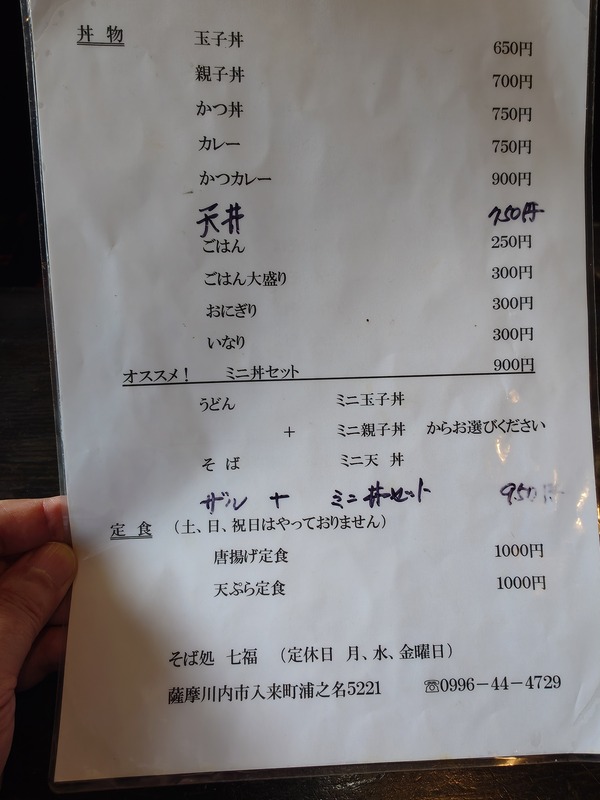 丼物 玉子丼 650円
親子丼 700円
かつ丼 750円
カレー 750円
かつカレー 900円
天丼 750円
ごはん 250円
ごはん大盛り 300円
おにぎり 300円
いなり 300円
オススメ! ミニ丼セット 900円
うどん ミニ玉子丼
+ ミニ親子丼 からお選びください
そば ミニ天丼
ザル + ミニ丼セット 950円
定食 (土、日、祝日はやっておりません)
唐揚げ定食 1000円
天ぷら定食 1000円
そば処 七福 (定休日 月、水、金曜日)
薩摩川内市入来町浦之名5221 ☏0996-44-4729